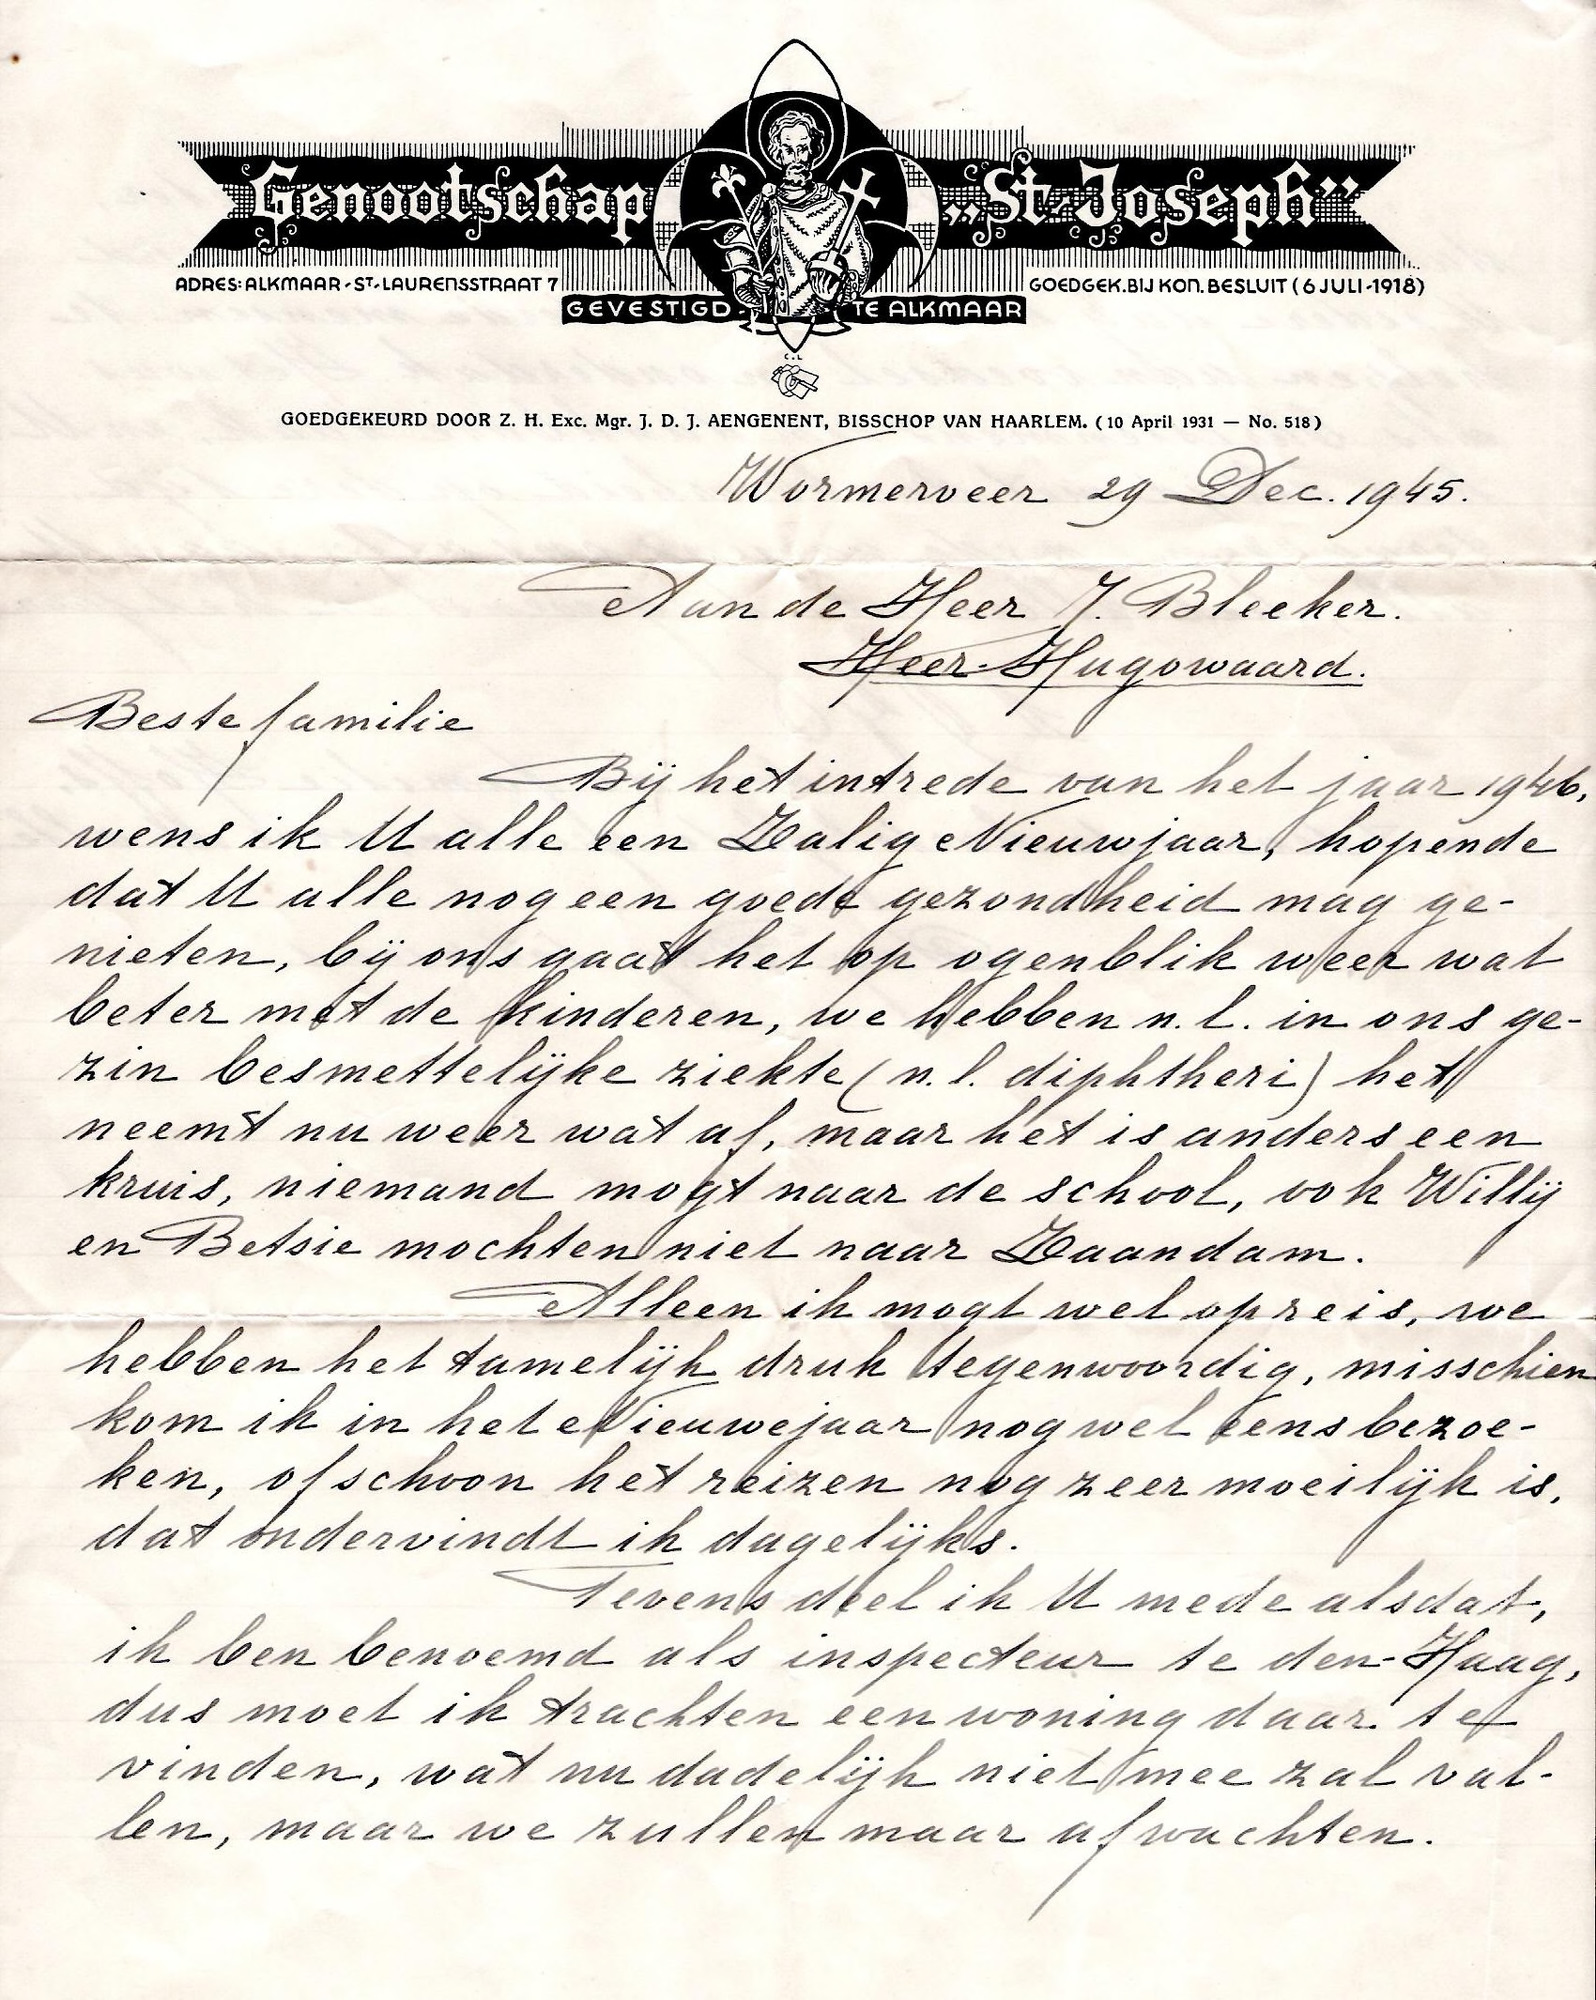 Genootschap „St. Joseph”
ADRES: ALKMAAR - ST. LAURENSSTRAAT 7
GOEDGEK. BIJ KON. BESLUIT (6 JULI - 1918)
GEVESTIGD TE ALKMAAR
C.L
GOEDGEKEURD DOOR Z. H. Exc. Mgr. J. D. J. AENGENENT, BISSCHOP VAN HAARLEM. (10 April 1931 — No. 518)
Wormerveer 29 Dec. 1945.
Aan de Heer J. Bleeker.
Heer-Hugowaard.
Beste familie
Bij het intrede van het jaar 1946,
wens ik U alle een Zalig Nieuwjaar, hopende
dat U alle nog een goede gezondheid mag ge-
nieten, bij ons gaat het op ogenblik weer wat
beter met de kinderen, we hebben n.l. in ons ge-
zin besmettelijke ziekte (n.l. diphtheri) het
neemt nu weer wat af, maar het is anders een
kruis, niemand mogt naar de school, ook Willy
en Betsie mochten niet naar Zaandam.
Alleen ik mogt wel op reis, we
hebben het tamelijk druk tegenwoordig, misschien
kom ik in het Nieuwejaar nog wel eens bezoe-
ken, ofschoon het reizen nog zeer moeilijk is,
dat ondervindt ik dagelijks.
Tevens deel ik U mede alsdat,
ik ben benoemd als inspecteur te den-Haag,
dus moet ik trachten een woning daar te
vinden, wat nu dadelijk niet mee zal val-
len, maar we zullen maar afwachten.